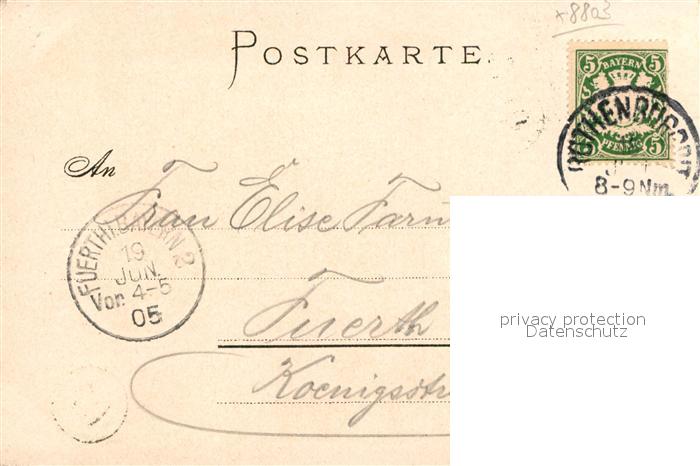 +8803
POSTKARTE.
5 BAYERN 5
5 PFENNIG 5
ROTHENBURG
8-9 Nm.
An
Frau Elise
FUERTH I. BAYERN 2
19
JUN.
Vor. 4-5
05
Fuerth
Koenigsstr
privacy protection
Datenschutz